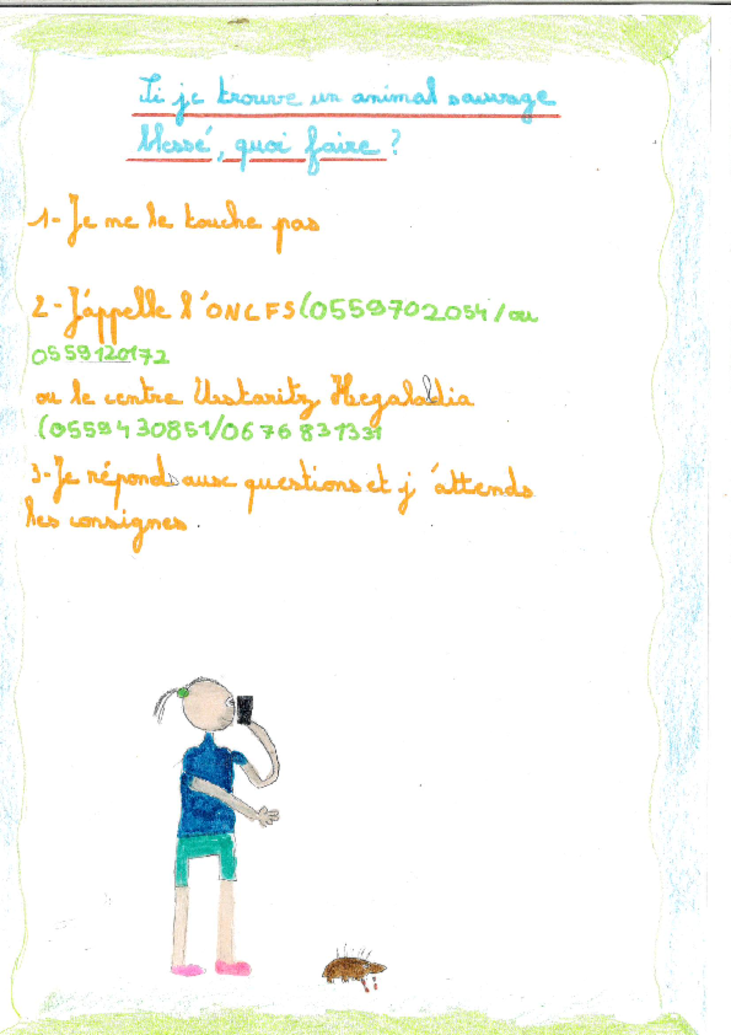 Si je trouve un animal sauvage
blessé, quoi faire ?
1- Je ne le touche pas
2- J'appelle l'ONCFS (0559702054 / ou
0559120172
ou le centre Ustaritz Hegalaldia
(0559430851/0676831331
3- Je réponds aux questions et j'attends
les consignes.